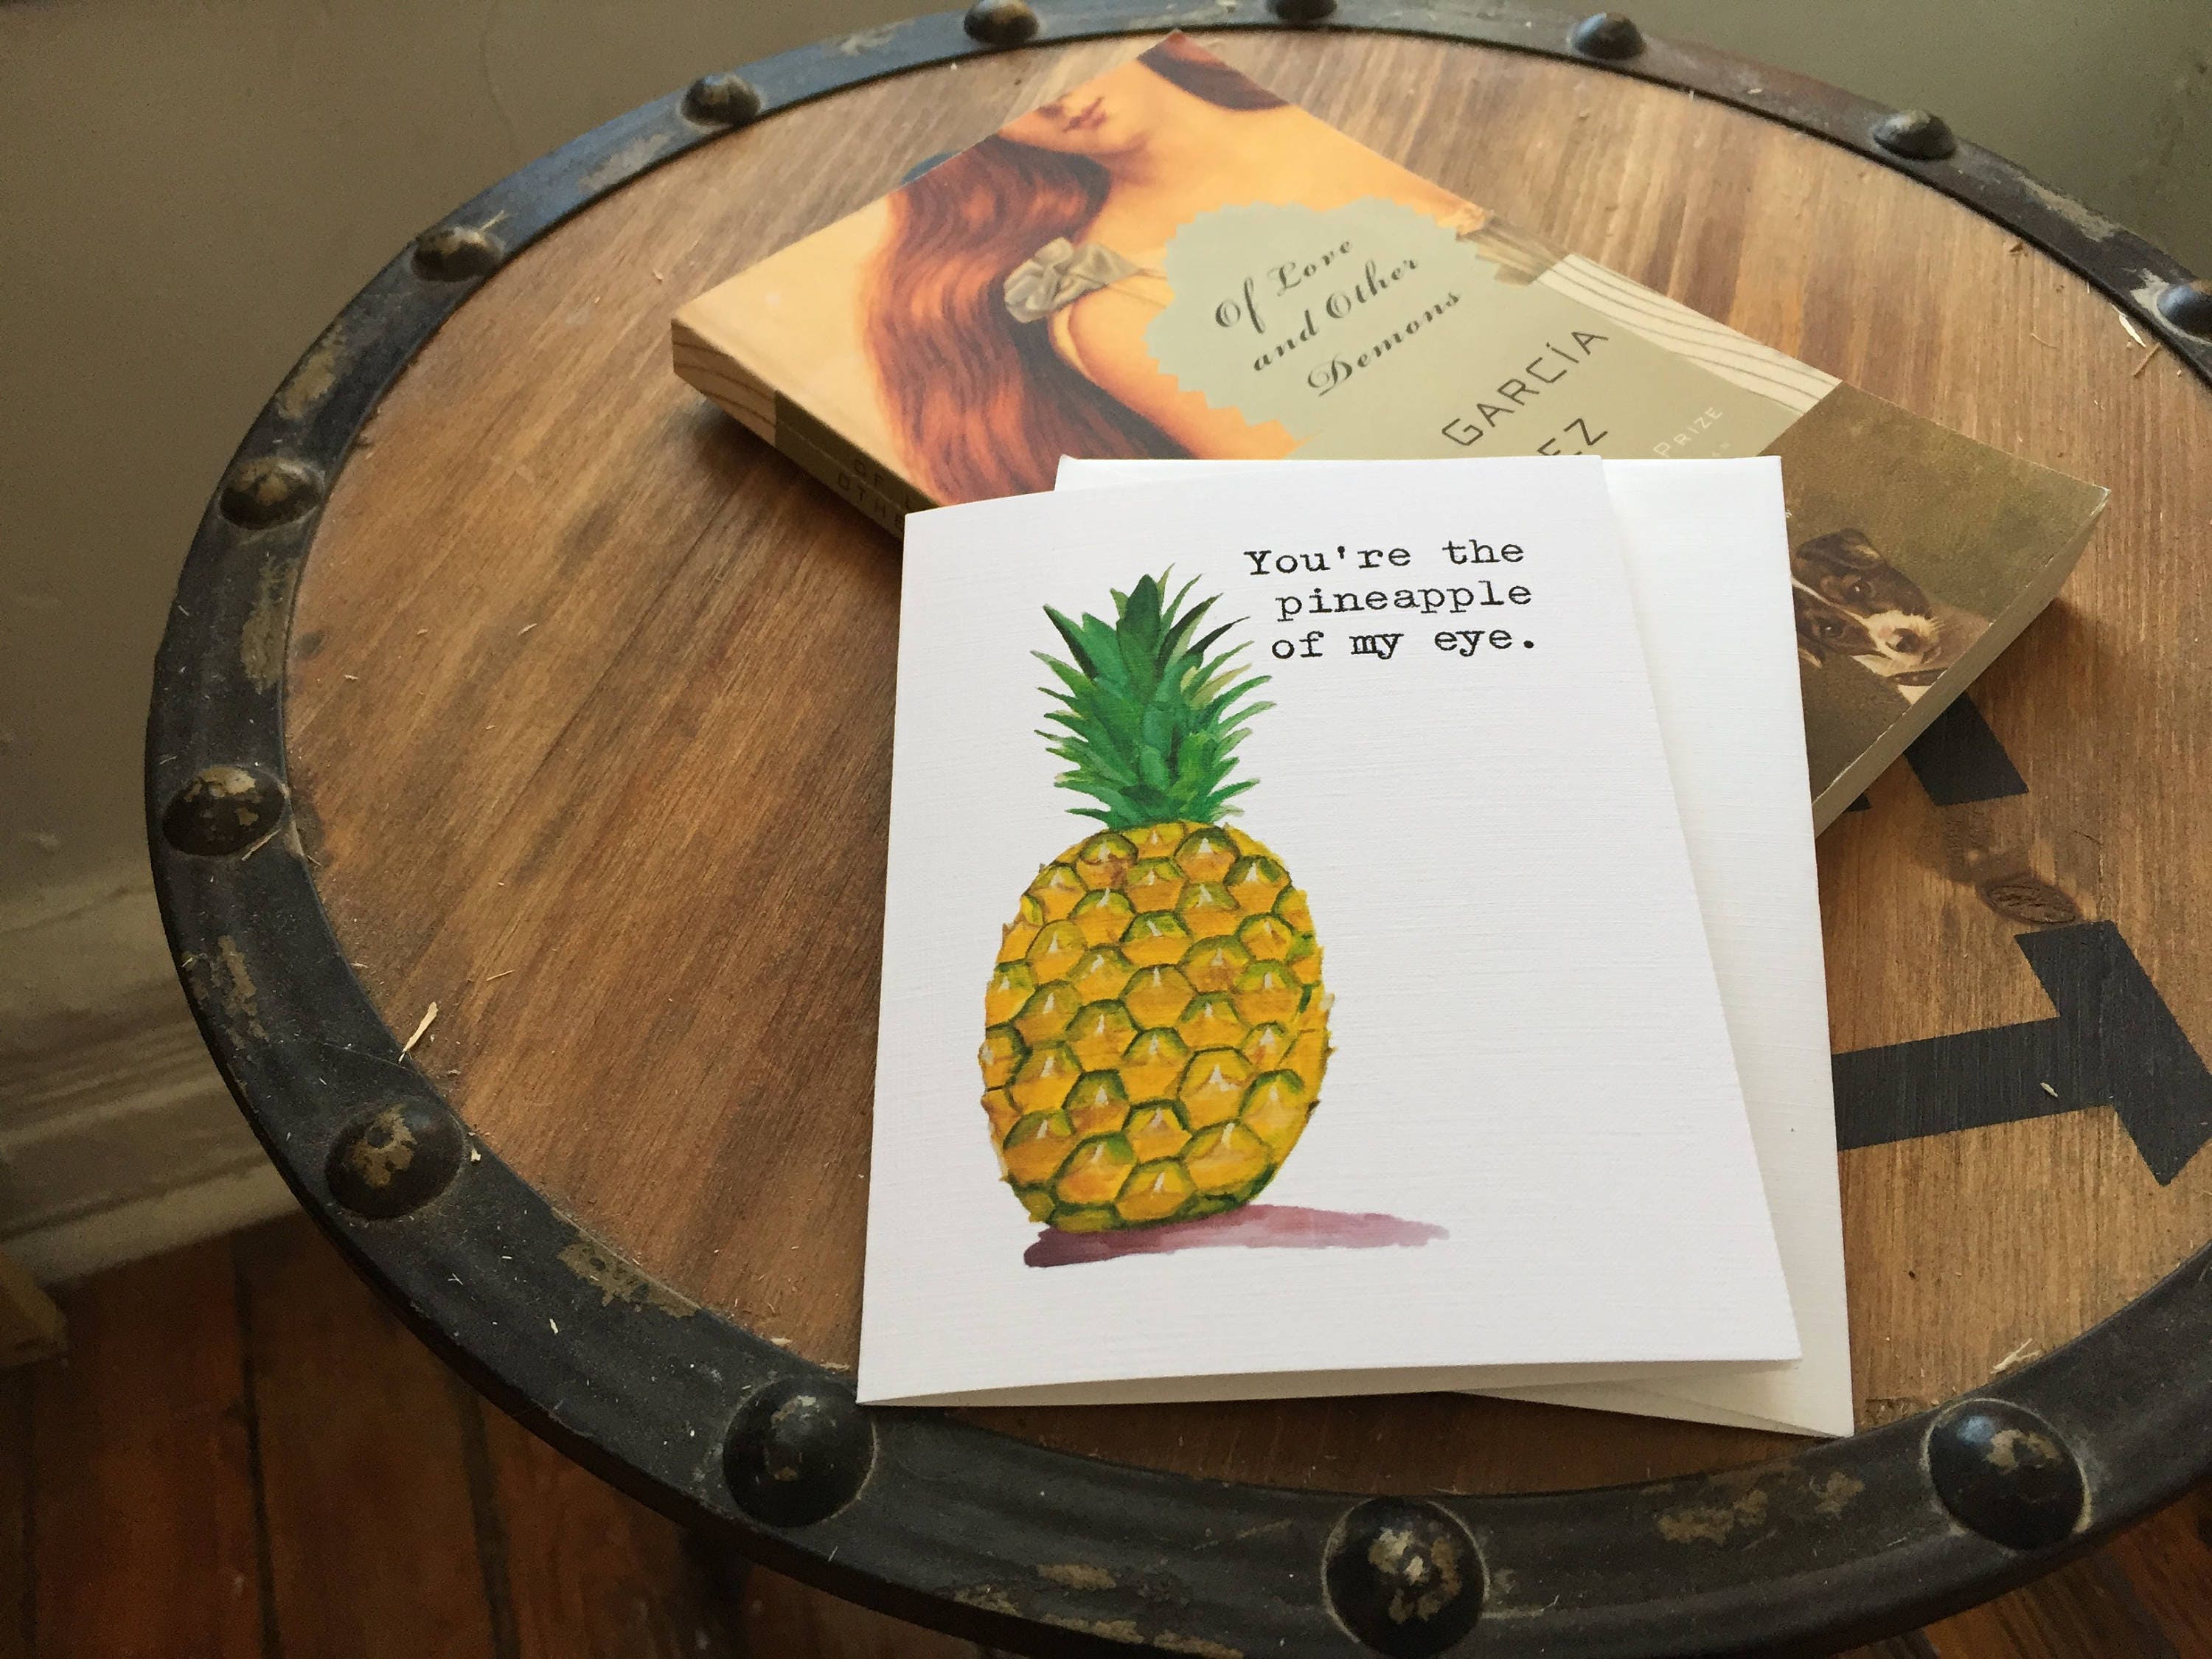 Of Love
and Other
Demons
GARCÍA
EZ
PRIZE
OF L
OTHE
You're the
pineapple
of my eye.